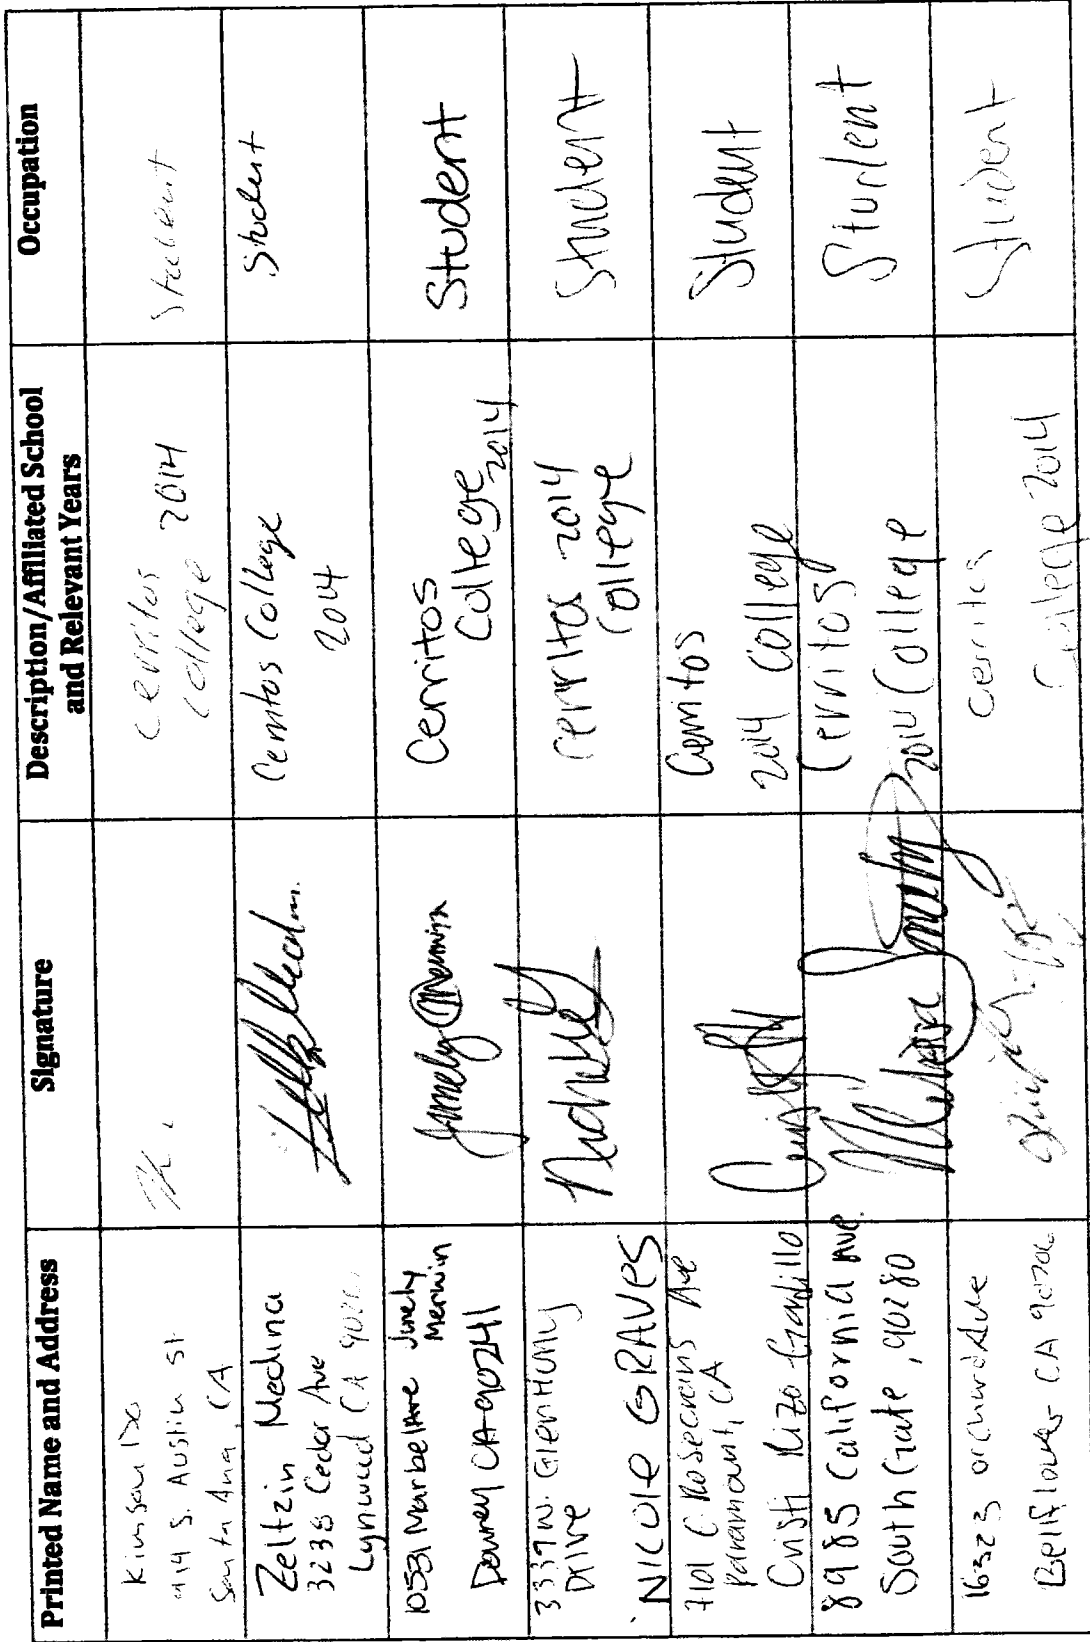 Printed Name and Address
Signature
Description/Affiliated School
and Relevant Years
Occupation
Kimsan Do
S. Austin St.
Santa Ana, CA
Cerritos
College 2014
Student
Zeltzin Medina
3238 Cedar Ave
Lynwood CA
Cerritos College
2014
Student
10531 Marbel Ave Junely
Merwin
Downey CA 90241
Junely Merwin
Cerritos
College 2014
Student
3337 W. Glen Holly
Drive
NICOLE GRAVES
Cerritos 2014
College
Student
7101 Rosecrans Ave
Paramount, CA
Cristi Rizo Gordillo
Cerritos
2014 College
Student
8985 California Ave.
South Gate, 90280
Cerritos
2014 College
Student
16323 orchard Ave
Bellflower CA 90706
Cerritos
College 2014
Student